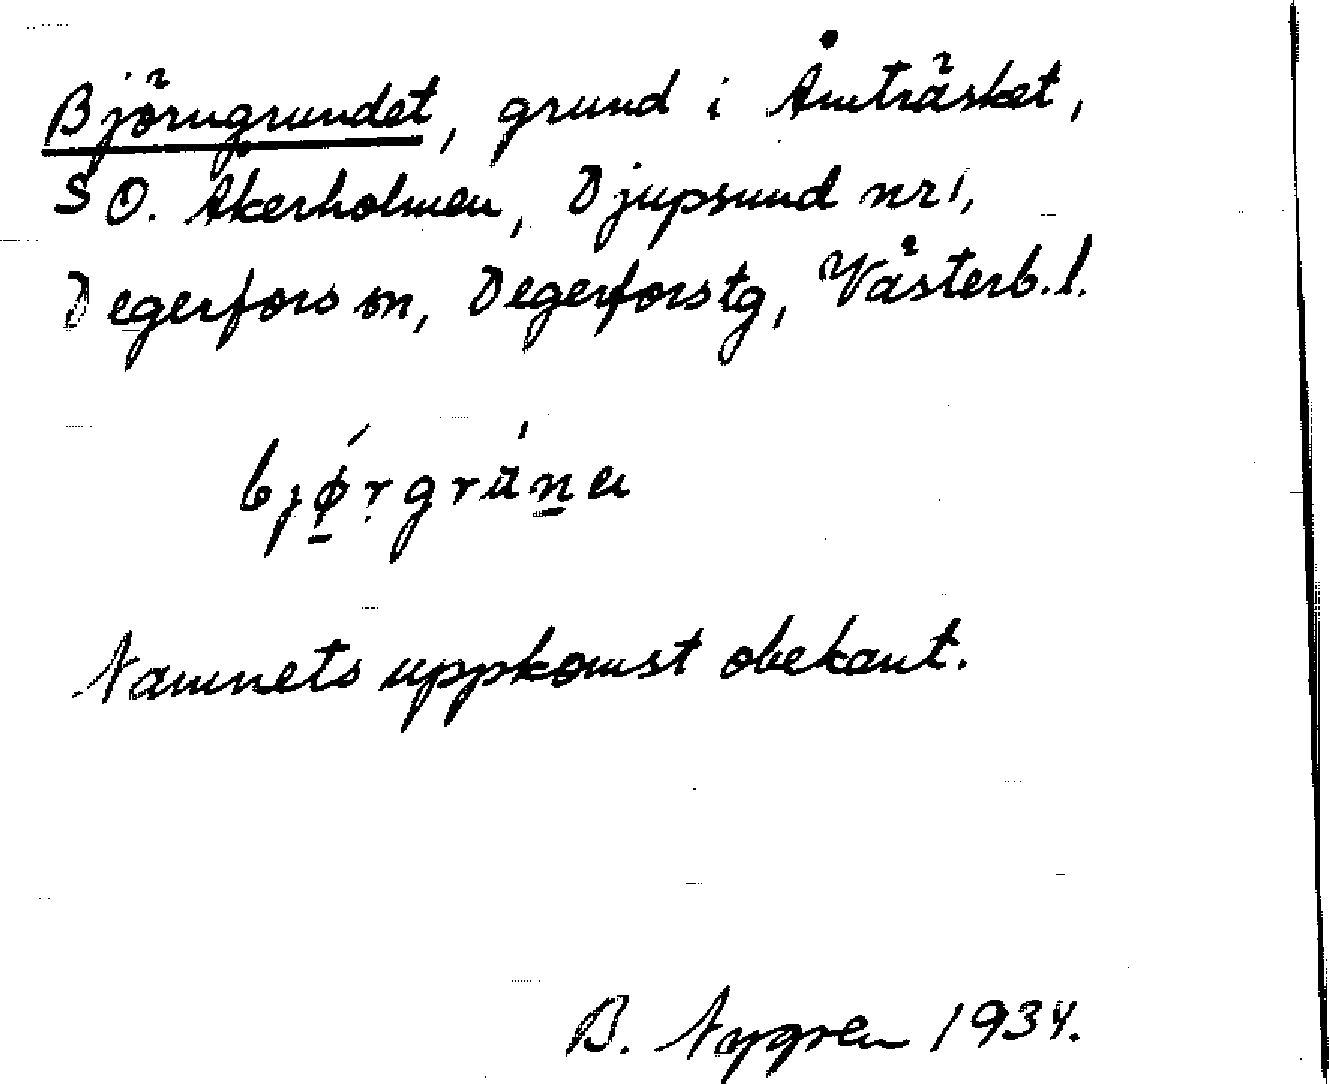 Björngrundet, grund i Åmträsket,
SO. Åkerholmen, Djupsund nr 1,
Degerfors sn, Degerfors tg, Västerb. l.
bjø̱rgru̇ṉa
Namnets uppkomst obekant.
B. Nygren 1934.